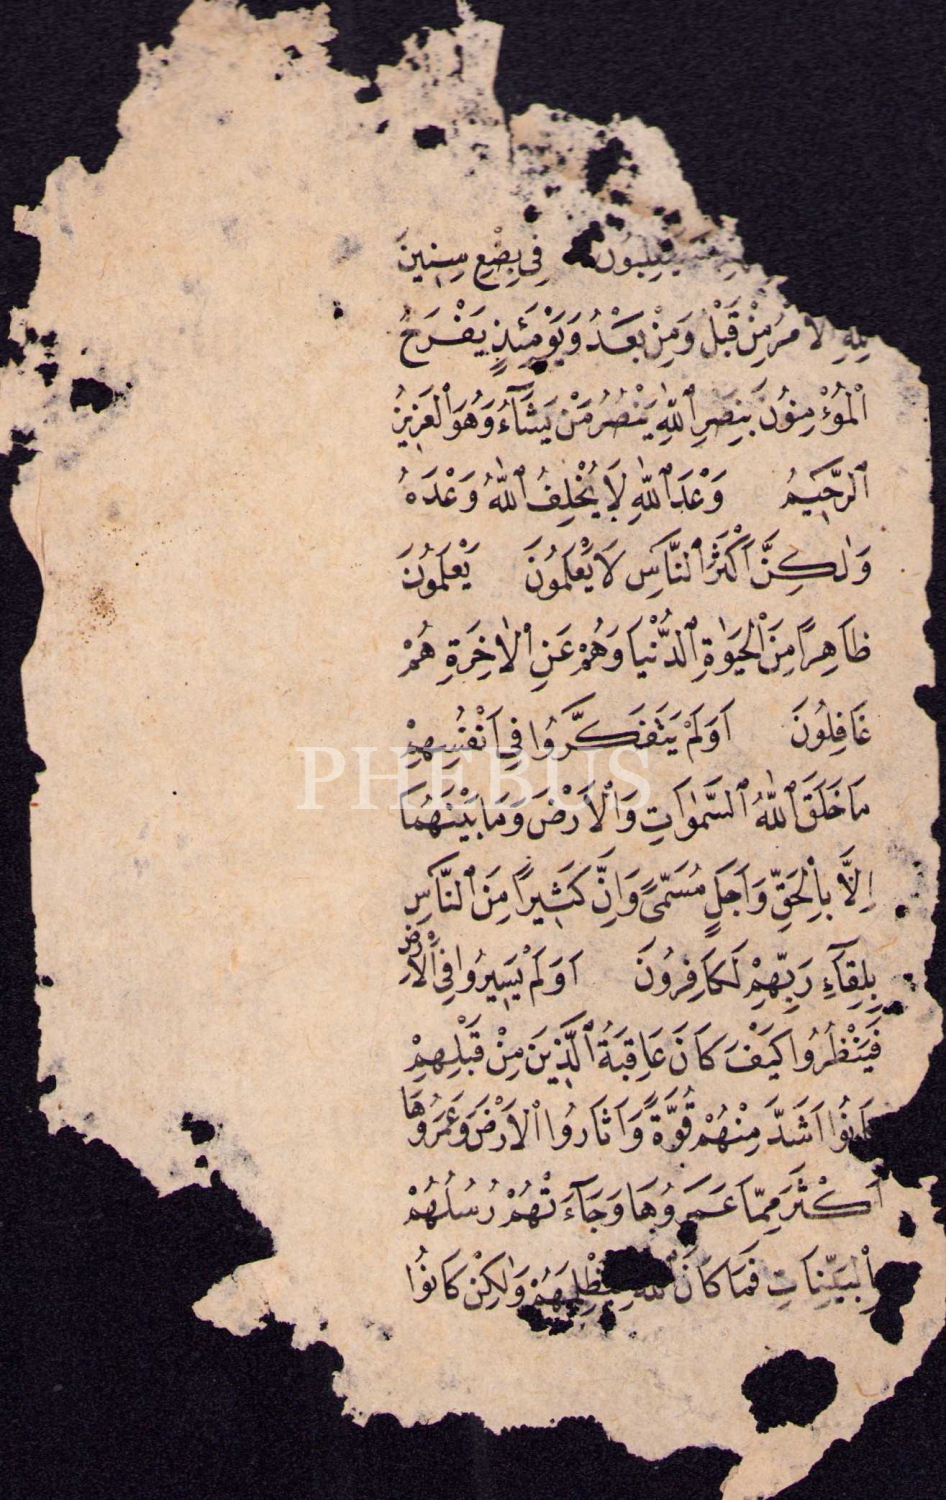 سَيَغْلِبُونَ فِي بِضْعِ سِنِينَ
لِلّٰهِ الْاَمْرُ مِنْ قَبْلُ وَمِنْ بَعْدُ وَيَوْمَئِذٍ يَفْرَحُ
ٱلْمُؤْمِنُونَ بِنَصْرِ ٱللّٰهِ يَنْصُرُ مَنْ يَشَآءُ وَهُوَ ٱلْعَزِيزُ
ٱلرَّحِيمُ وَعْدَ ٱللّٰهِ لَا يُخْلِفُ ٱللّٰهُ وَعْدَهُ
وَلٰكِنَّ اَكْثَرَ ٱلنَّاسِ لَا يَعْلَمُونَ يَعْلَمُونَ
ظَاهِرًا مِنَ ٱلْحَيٰوةِ ٱلدُّنْيَا وَهُمْ عَنِ ٱلْاٰخِرَةِ هُمْ
غَافِلُونَ اَوَلَمْ يَتَفَكَّرُوا فِي اَنْفُسِهِمْ
مَا خَلَقَ ٱللّٰهُ ٱلسَّمٰوَاتِ وَٱلْاَرْضَ وَمَا بَيْنَهُمَا
اِلَّا بِٱلْحَقِّ وَاَجَلٍ مُسَمًّى وَاِنَّ كَثِيرًا مِنَ ٱلنَّاسِ
بِلِقَآءِ رَبِّهِمْ لَكَافِرُونَ اَوَلَمْ يَسِيرُوا فِي ٱلْاَرْضِ
فَيَنْظُرُوا كَيْفَ كَانَ عَاقِبَةُ ٱلَّذِينَ مِنْ قَبْلِهِمْ
كَانُوا اَشَدَّ مِنْهُمْ قُوَّةً وَاَثَارُوا ٱلْاَرْضَ وَعَمَرُوهَا
اَكْثَرَ مِمَّا عَمَرُوهَا وَجَآءَتْهُمْ رُسُلُهُمْ
بِٱلْبَيِّنَاتِ فَمَا كَانَ ٱللّٰهُ لِيَظْلِمَهُمْ وَلٰكِنْ كَانُوا
PHEBUS